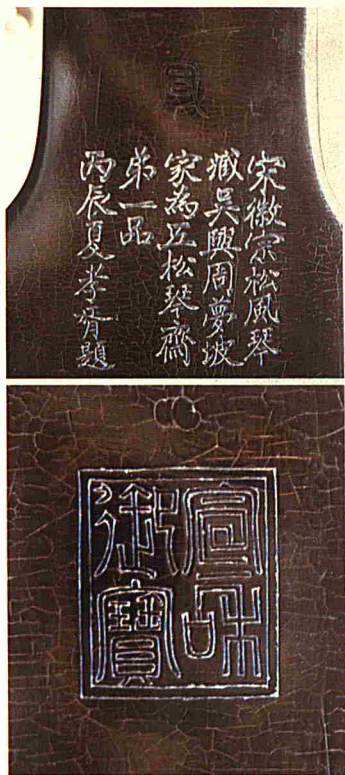 宋徽宗松風琴
臧吳興周夢坡
家為五松琴齋
弟一品
丙辰夏孝胥題
宣和
御寶